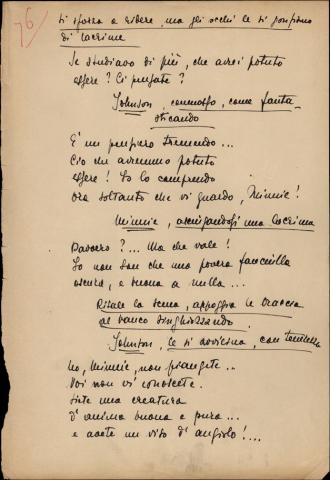 76
si sforza a ridere, ma gli occhi le si gonfiano
di lacrime
Se studiavo di più, che avrei potuto
essere? Ci pensate?
Johnson, commosso, come fanta-
sticando
È un pensiero tremendo...
Ciò che avremmo potuto
essere! Io lo comprendo
ora soltanto che vi guardo, Minnie!
Minnie, asciugandosi una lacrima
Davvero?... Ma che vale!
Io non son che una povera fanciulla
oscura, e buona a nulla...
Risale la scena, appoggia le braccia
al banco singhiozzando.
Johnson, le si avvicina, con tenerezza
No, Minnie, non piangete...
Voi non vi conoscete.
Siete una creatura
d'anima buona e pura...
e avete un viso d'angiolo!...